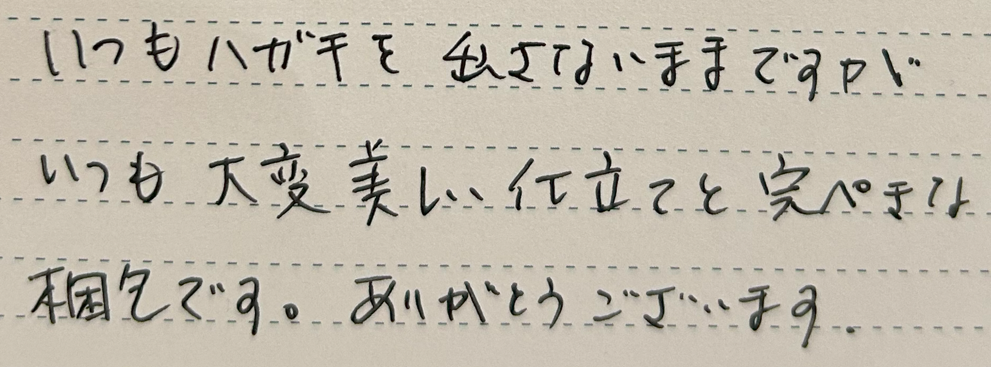 いつもハガキを出さないままですが
いつも大変美しい仕立てと完ぺきな
梱包です。ありがとうございます.